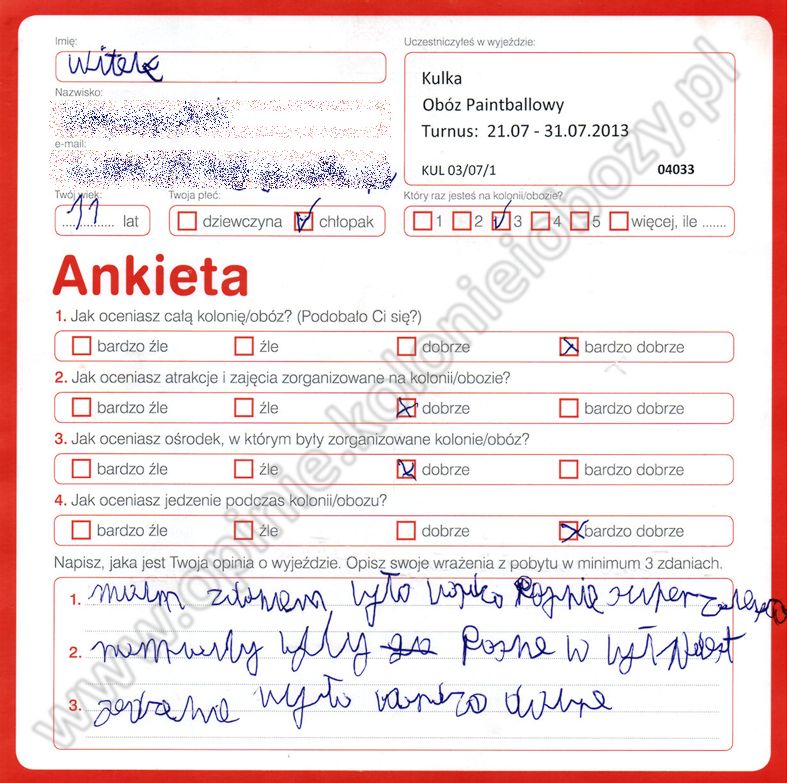 Imię:
Witek
Uczestniczyłeś w wyjeździe:
Kulka
Obóz Paintballowy
Turnus: 21.07 - 31.07.2013
KUL 03/07/1 04033
Nazwisko:
e-mail:
Twój wiek:
11 lat
Twoja płeć:
dziewczyna chłopak
Który raz jesteś na kolonii/obozie?
1 2 3 4 5 więcej, ile .......
Ankieta
1. Jak oceniasz całą kolonię/obóz? (Podobało Ci się?)
bardzo źle źle dobrze bardzo dobrze
2. Jak oceniasz atrakcje i zajęcia zorganizowane na kolonii/obozie?
bardzo źle źle dobrze bardzo dobrze
3. Jak oceniasz ośrodek, w którym były zorganizowane kolonie/obóz?
bardzo źle źle dobrze bardzo dobrze
4. Jak oceniasz jedzenie podczas kolonii/obozu?
bardzo źle źle dobrze bardzo dobrze
Napisz, jaka jest Twoja opinia o wyjeździe. Opisz swoje wrażenia z pobytu w minimum 3 zdaniach.
1. moim zdaniem było super
2. były
3. było dobre
www.opinie.kolonieiobozy.pl